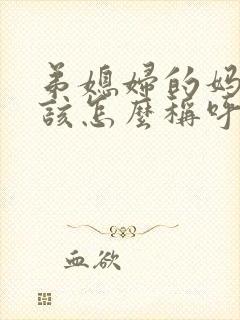 弟媳婦的妈
該怎麼稱呼
血欲